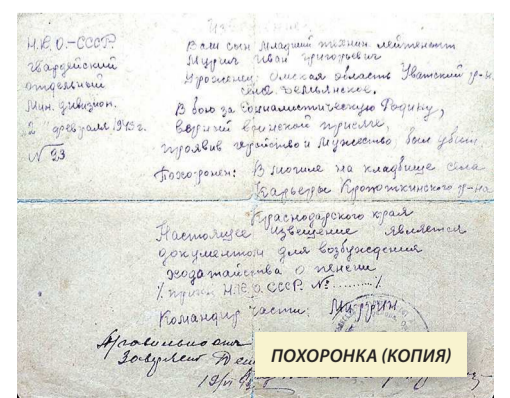 Извещение
Н.К.О.-СССР.
Гвардейский
отдельный
Мин. дивизион.
"2" февраля 1943г.
N 23
Ваш сын Младший техник лейтенант
Мурич Иван Григорьевич
Уроженец: Омская область Уватский р-н.
село Демьянское.
В бою за Социалистическую Родину,
верный воинской присяге,
проявив геройство и мужество, был убит
Похоронен: В могиле на кладбище села
Карьеры Кропоткинского р-на
Краснодарского края
Настоящее извещение является
документом для возбуждения
ходатайства о пенсии
/. приказ Н.К.О. СССР. № .......... /.
Командир части:
Заверяет
ПОХОРОНКА (КОПИЯ)